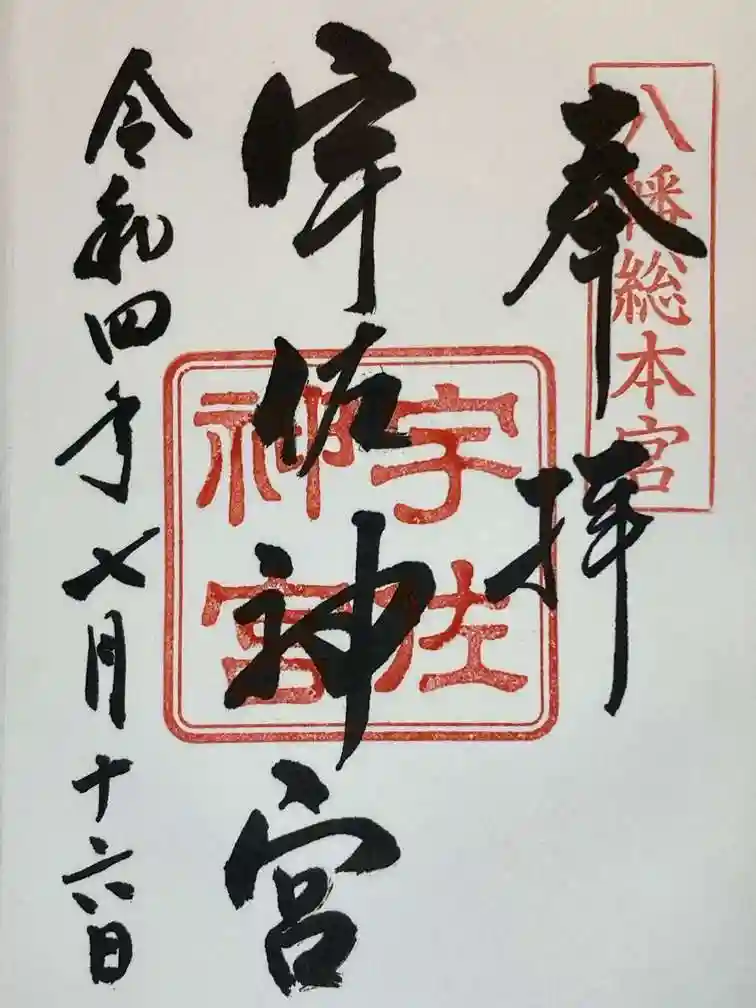 八幡総本宮
奉拝
宇佐神宮
宇佐
神宮
令和四年七月十六日